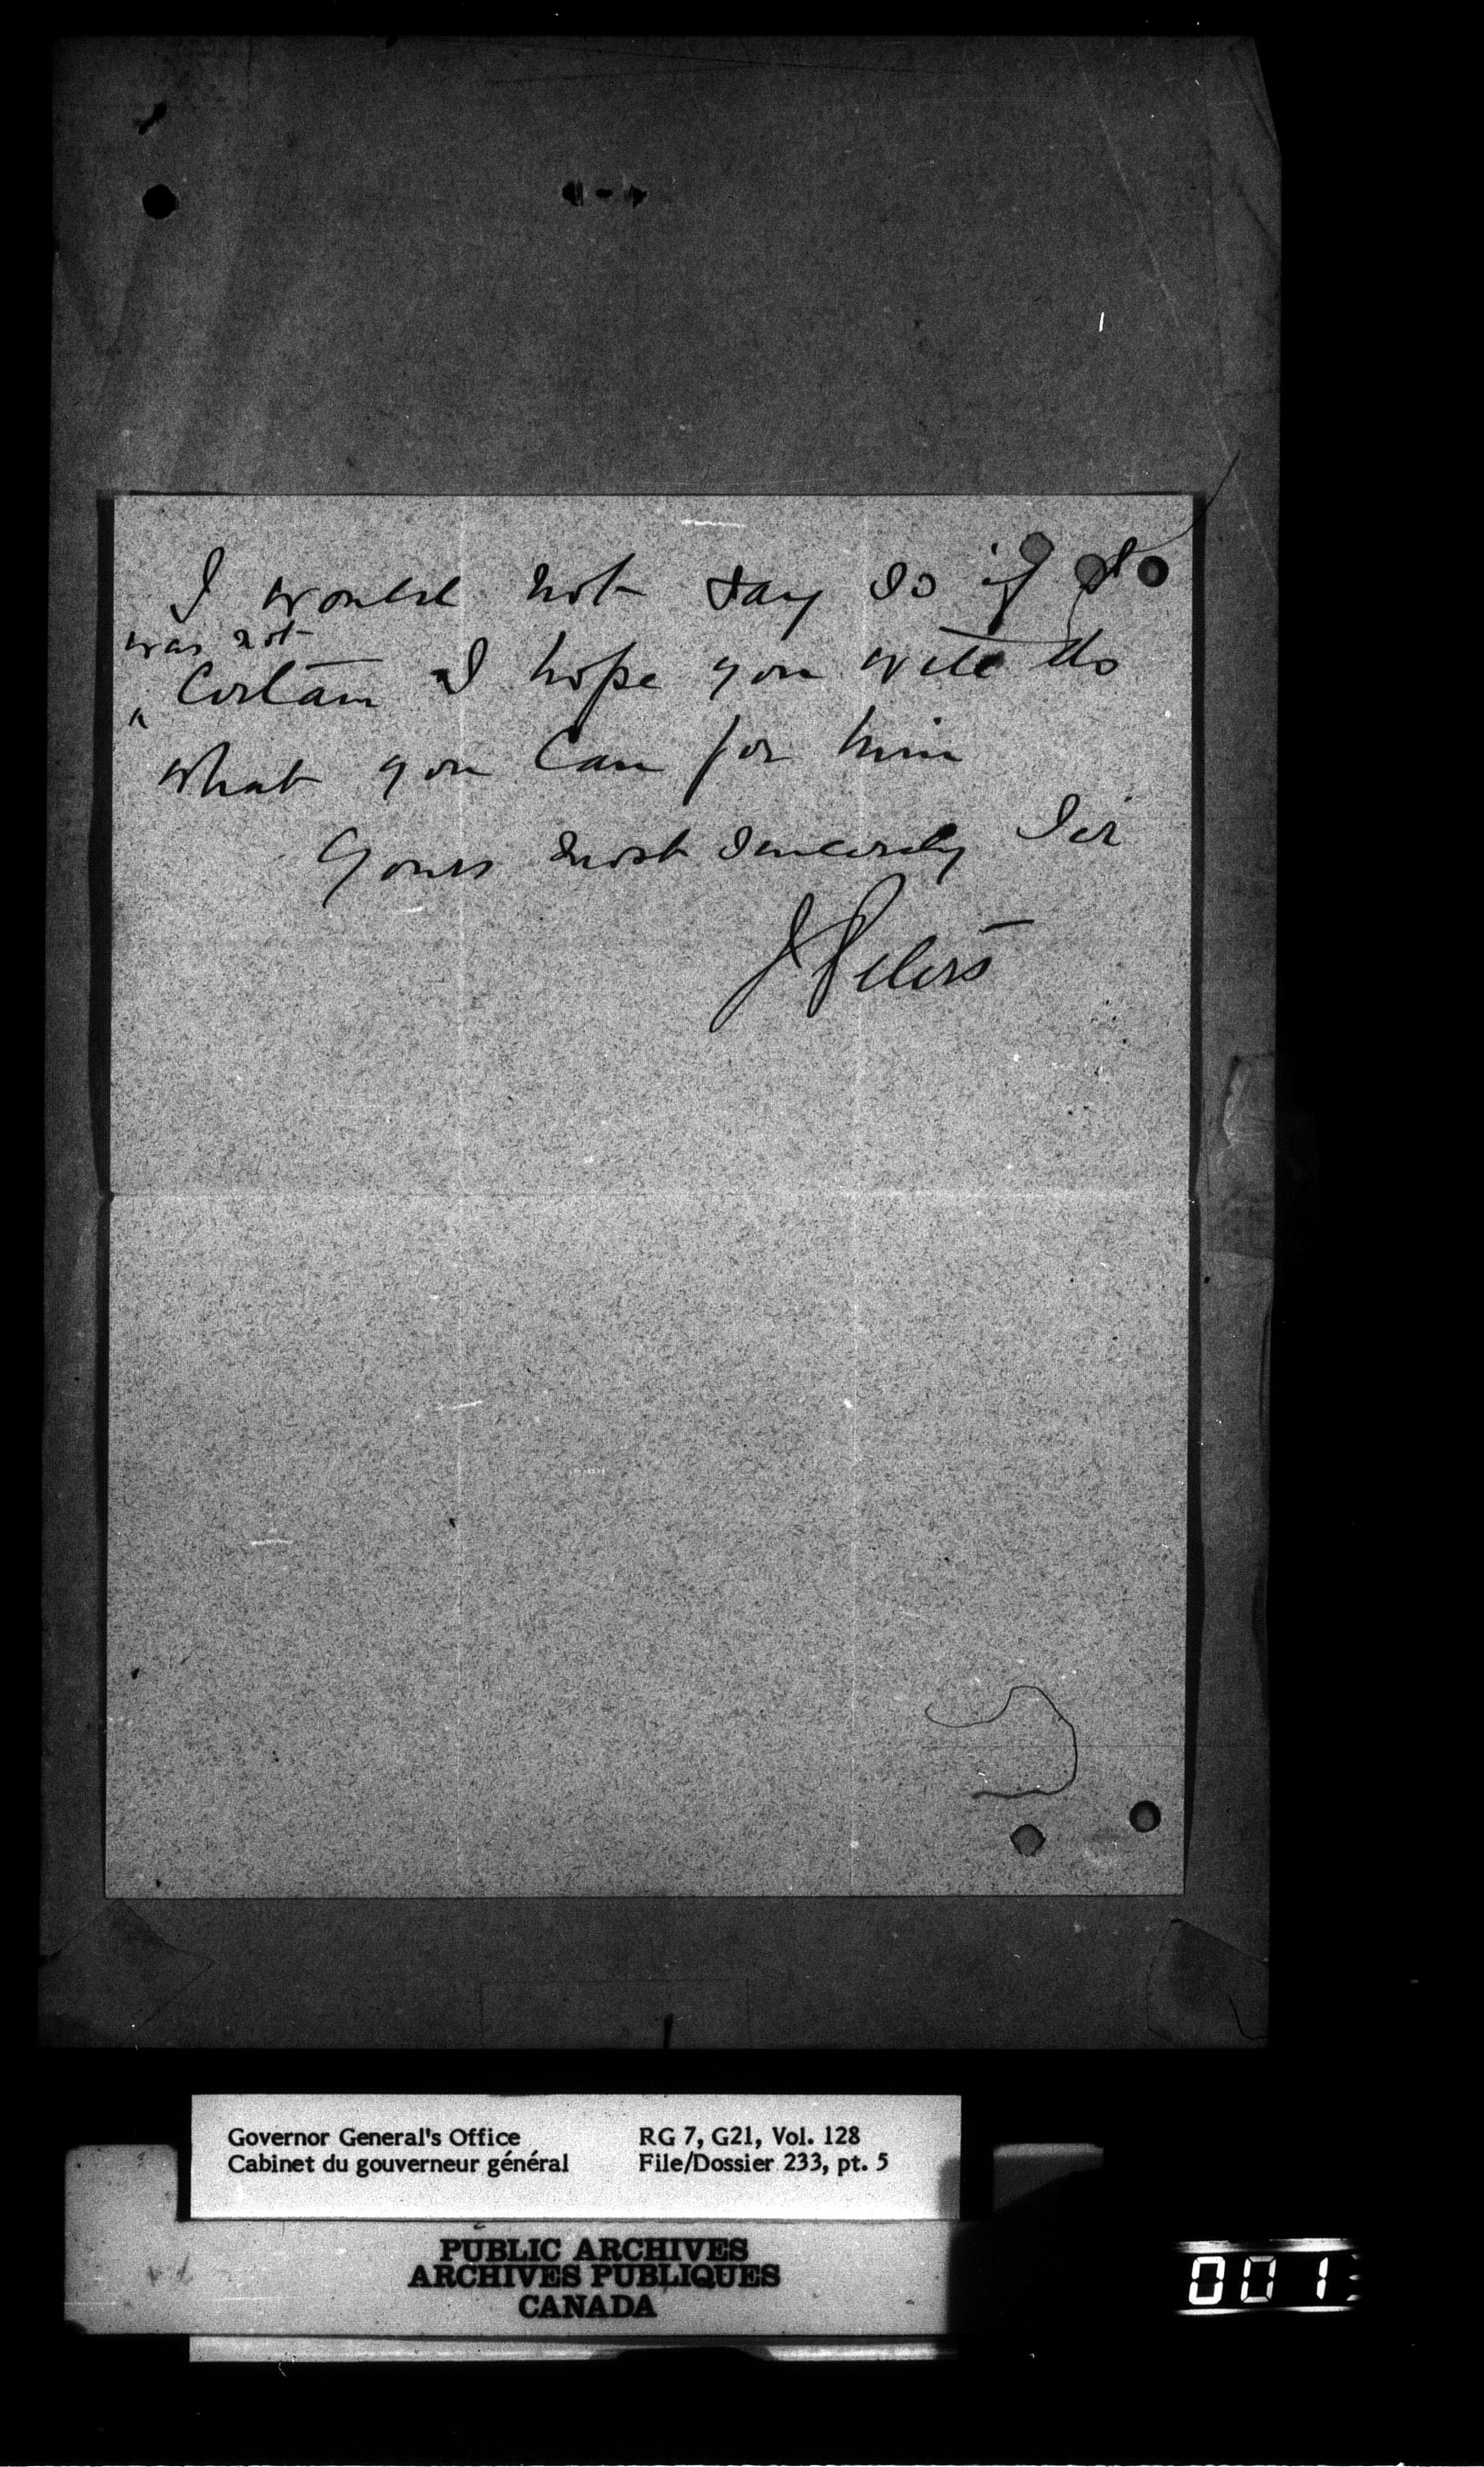 I would not say so if I
was not
" Certain I hope you will do
what you can for him
Yours most sincerely Sir
J Peters
Governor General's Office RG 7, G21, Vol. 128
Cabinet du gouverneur général File/Dossier 233, pt. 5
PUBLIC ARCHIVES
ARCHIVES PUBLIQUES
CANADA
001